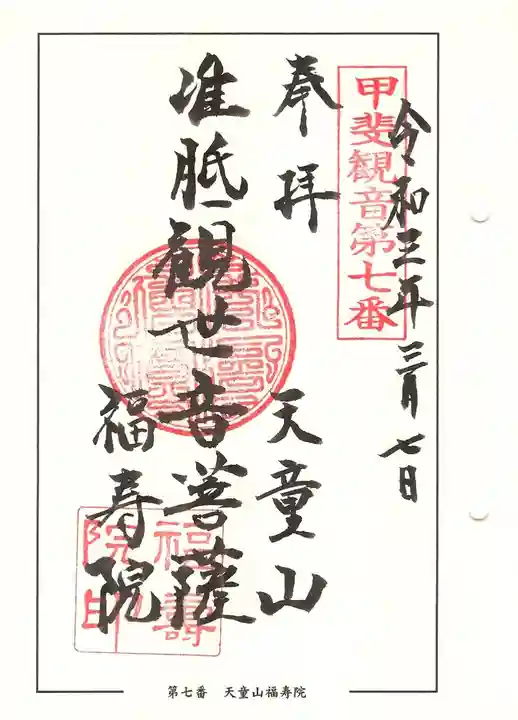 甲斐観音第七番
令和三年三月七日
奉拝
天童山
准胝観世音菩薩
福寿院
福壽
院印
第七番 天童山福寿院